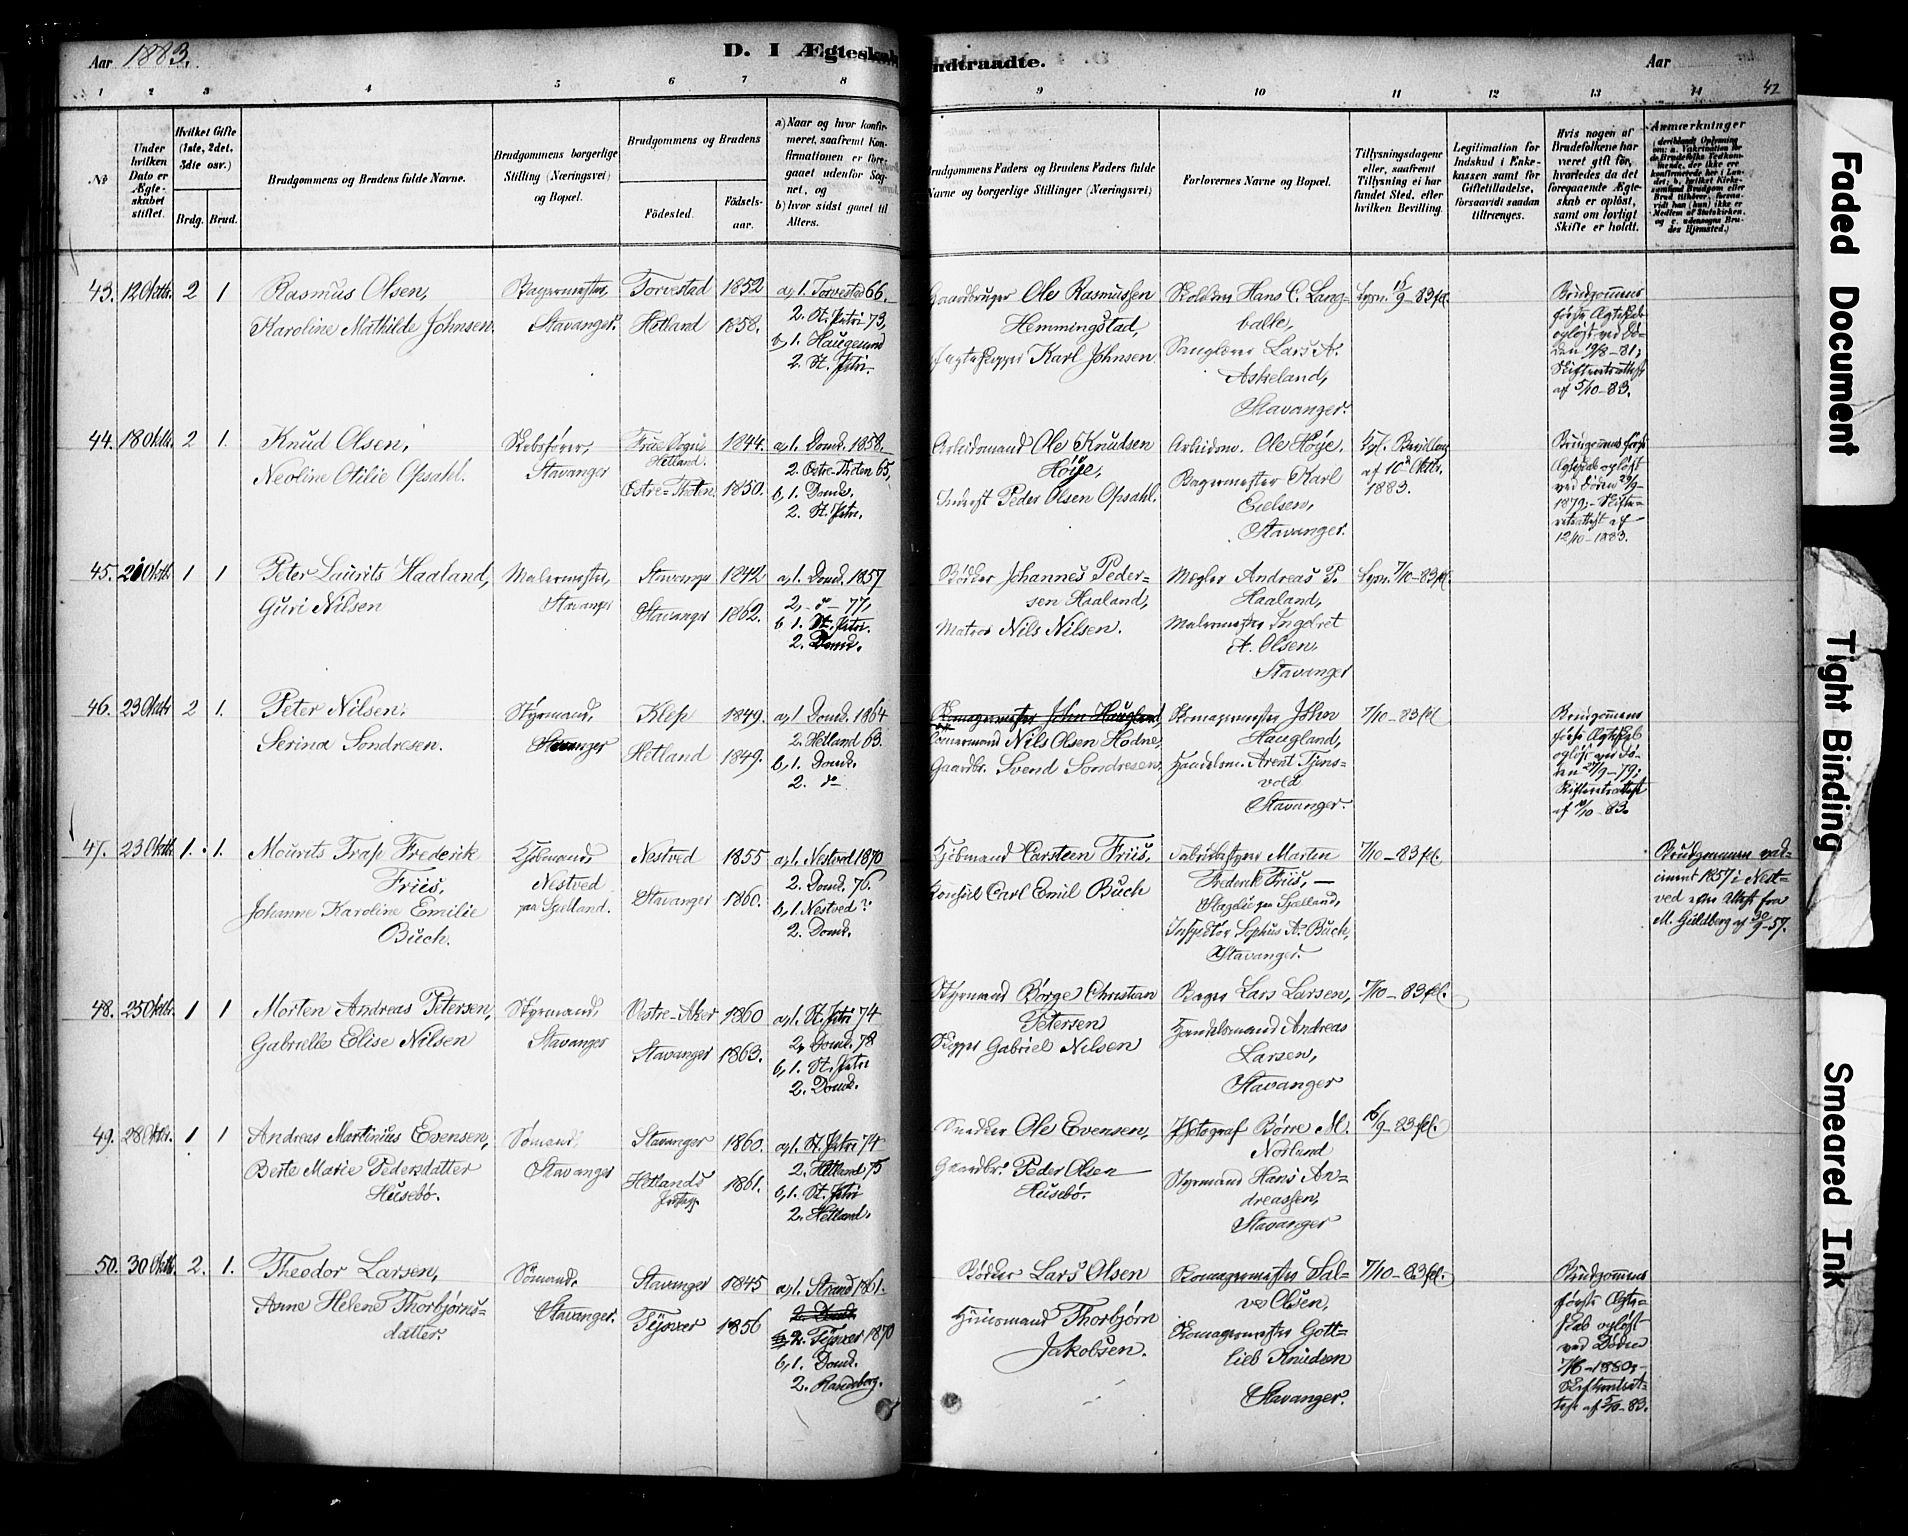 Aar 1883.
D. I Ægteskab
indtraadte.
Aar
1 2 3 4 5 6 7 8
9 10 11 12 13 14 42
No
Under hvilken Dato er Ægteskabet stiftet.
Hvilket Gifte (1ste, 2det, 3die osv.)
Brdg. Brud.
Brudgommens og Brudens fulde Navne.
Brudgommens borgerlige Stilling (Næringsvei) og Bopæl.
Brudgommens og Brudens
Födested. Födsels-aar.
a) Naar og hvor konfirmeret, saafremt Konfirmationen er foregaaet udenfor Sognet, og
b) hvor sidst gaaet til Alters.
Brudgommens Faders og Brudens Faders fulde Navne og borgerlige Stillinger (Næringsvei)
Forlovernes Navne og Bopæl.
Tillysningsdagene eller, saafremt Tillysning ei har fundet Sted, efter hvilken Bevilling.
Legitimation for Indskud i Enkekassen samt for Giftetilladelse, forsaavidt saadan tiltrænges.
Hvis nogen af Brudefolkene har været gift før, hvorledes da det foregaaende Ægteskab er opløst, samt om lovligt Skifte er holdt.
Anmærkninger
43. 12 Oktb. 2 1
Rasmus Olsen,
Karoline Mathilde Johnsen.
Bagermester,
Stavanger.
Torvestad 1852
Hetland 1858.
a, 1. Torvestad 66.
2. St. Petri 73,
b, 1. Haugesund
2. St. Petri.
Gaardbruger Ole Rasmussen
Hemmingstad,
Jagteskipper Karl Johnsen
Hans C. Lang-
balle,
Sanglærer Lars A.
Askeland,
Stavanger.
Lysn. 16/9-83 fl.
Brudgommens
første Ægteskab
opløst ved Dø-
den 19/8-81,
Skifteretsattest
af 5/10-83.
44. 18 Oktb. 2 1.
Knud Olsen,
Neoline Otilie Opsahl.
Rebsfører,
Stavanger
Frue Sogn
Hetland. 1844.
Østre-Thoten. 1850.
a, 1. Domk. 1858.
2. Østre-Thoten 65,
b, 1. Domk.
2. St. Petri.
Arbeidsmand Ole Knudsen
Høije,
Inderst Peder Olsen Opsahl.
Arbeidsm. Ole Høije.
Bagermester Karl
Eielsen,
Stavanger.
Kgl. Bevilling
af 10 Oktbr.
1883.
Brudgommens første
Ægteskab opløst
ved Døden 29/9-
1879,- Skifte-
retsattest af
12/10-1883.
45. 20 Oktb. 1 1
Peter Laurits Haaland,
Guri Nilsen
Malermester,
Stavanger
Stavanger 1842
Stavanger 1862.
a, 1. Domk. 1857
2,-d-77,
b 1. St. Petri.
2. Domk.
Bødker Johannes Peder-
sen Haaland,
Matros Nils Nilsen.
Mægler Andreas P.
Haaland,
Malermester Ingebret
A. Olsen,
Stavanger
Lysn. 7/10-83 fl.
46. 23 Oktbr 2 1.
Peter Nilsen,
Serina Sondresen.
Styrmand,
Stavanger
Klep 1849.
Hetland 1849.
a, 1. Domk. 1864
2. Hetland 63.
b, 1. Domk.
2. d-
Skomagermester John Haugland
Tømmermand Nils Olsen Hodne,
Gaardbr. Svend Sondresen,
Skomagermester John
Haugland,
Handelsm. Arent Tjens-
vold
Stavanger.
7/10-83 fl
Brudgommens
første Ægteskab
opløst ved Dø-
den 27/9-79,
Skifteretsattest
af 10/10-83.
47. 23 Oktb. 1. 1.
Mourits Trap Frederik
Friis,
Johanne Karoline Emilie
Buch.
Kjøbmand,
Nestved
paa Sjælland.
Nestved 1855
Stavanger 1860.
a, 1. Nestved 1870
2. Domk. 76.
b, 1. Nestved?
2. Domk.
Kjøbmand Carsteen Friis,
Konsul Carl Emil Buch
Fabrikbestyrer Morten
Frederik Friis, —
Slagelse paa Sjælland,
Inspektør Sophus A. Buch,
Stavanger.
7/10-83 fl.
Brudgommen vac-
cineret 1857 i Nest-
ved efter Attest fra
M. Guldberg af 30/9-57.
48. 25 Oktbr. 1 1
Morten Andreas Petersen,
Gabrielle Elise Nilsen
Styrmand,
Stavanger
Vestre-Aker 1860
Stavanger 1863.
a, 1. St. Petri 74
2, Domk. 78
b, 1. St. Petri
2. Domk.
Styrmand Børge Christian
Petersen
Skipper Gabriel Nilsen
Bager Lars Larsen,
Handelsmand Andreas
Larsen,
Stavanger
7/10-83 fl.
49. 28 Oktbr. 1 1
Andreas Martinius Evensen,
Berte Marie Pedersdatter
Husebø.
Sømand,
Stavanger
Stavanger 1860.
Hetlands
Præstegj. 1861.
a, 1. St. Petri 74
2. Hetland 75
b, 1. St. Petri
2. Hetland.
Snedker Ole Evensen,
Gaardbr. Peder Olsen
Husebø.
Fotograf Børre M.
Norland
Styrmand Hans An-
dreassen,
Stavanger
16/9-83 fl.
50. 30 Oktb. 2. 1.
Theodor Larsen,
Anne Helene Thorbjørns-
datter.
Sømand,
Stavanger.
Stavanger 1845
Tysvær 1856
a, 1. Strand 1861.
2. Domk
2. Tysvær 1870
b, 1. Domk.
2. Rosenberg.
Bødker Lars Olsen
Huusmand Thorbjørn
Jakobsen.
Skomagermester Sal-
ve Olsen,
Skomagermester Gott-
lieb Knudsen
Stavanger.
7/10-83 fl.
Brudgommens
første Ægte-
skab opløst
ved Døden
7/6-1880,-
Skifteretsat-
test af 5/10-83.
Faded Document
Tight Binding
Smeared Ink